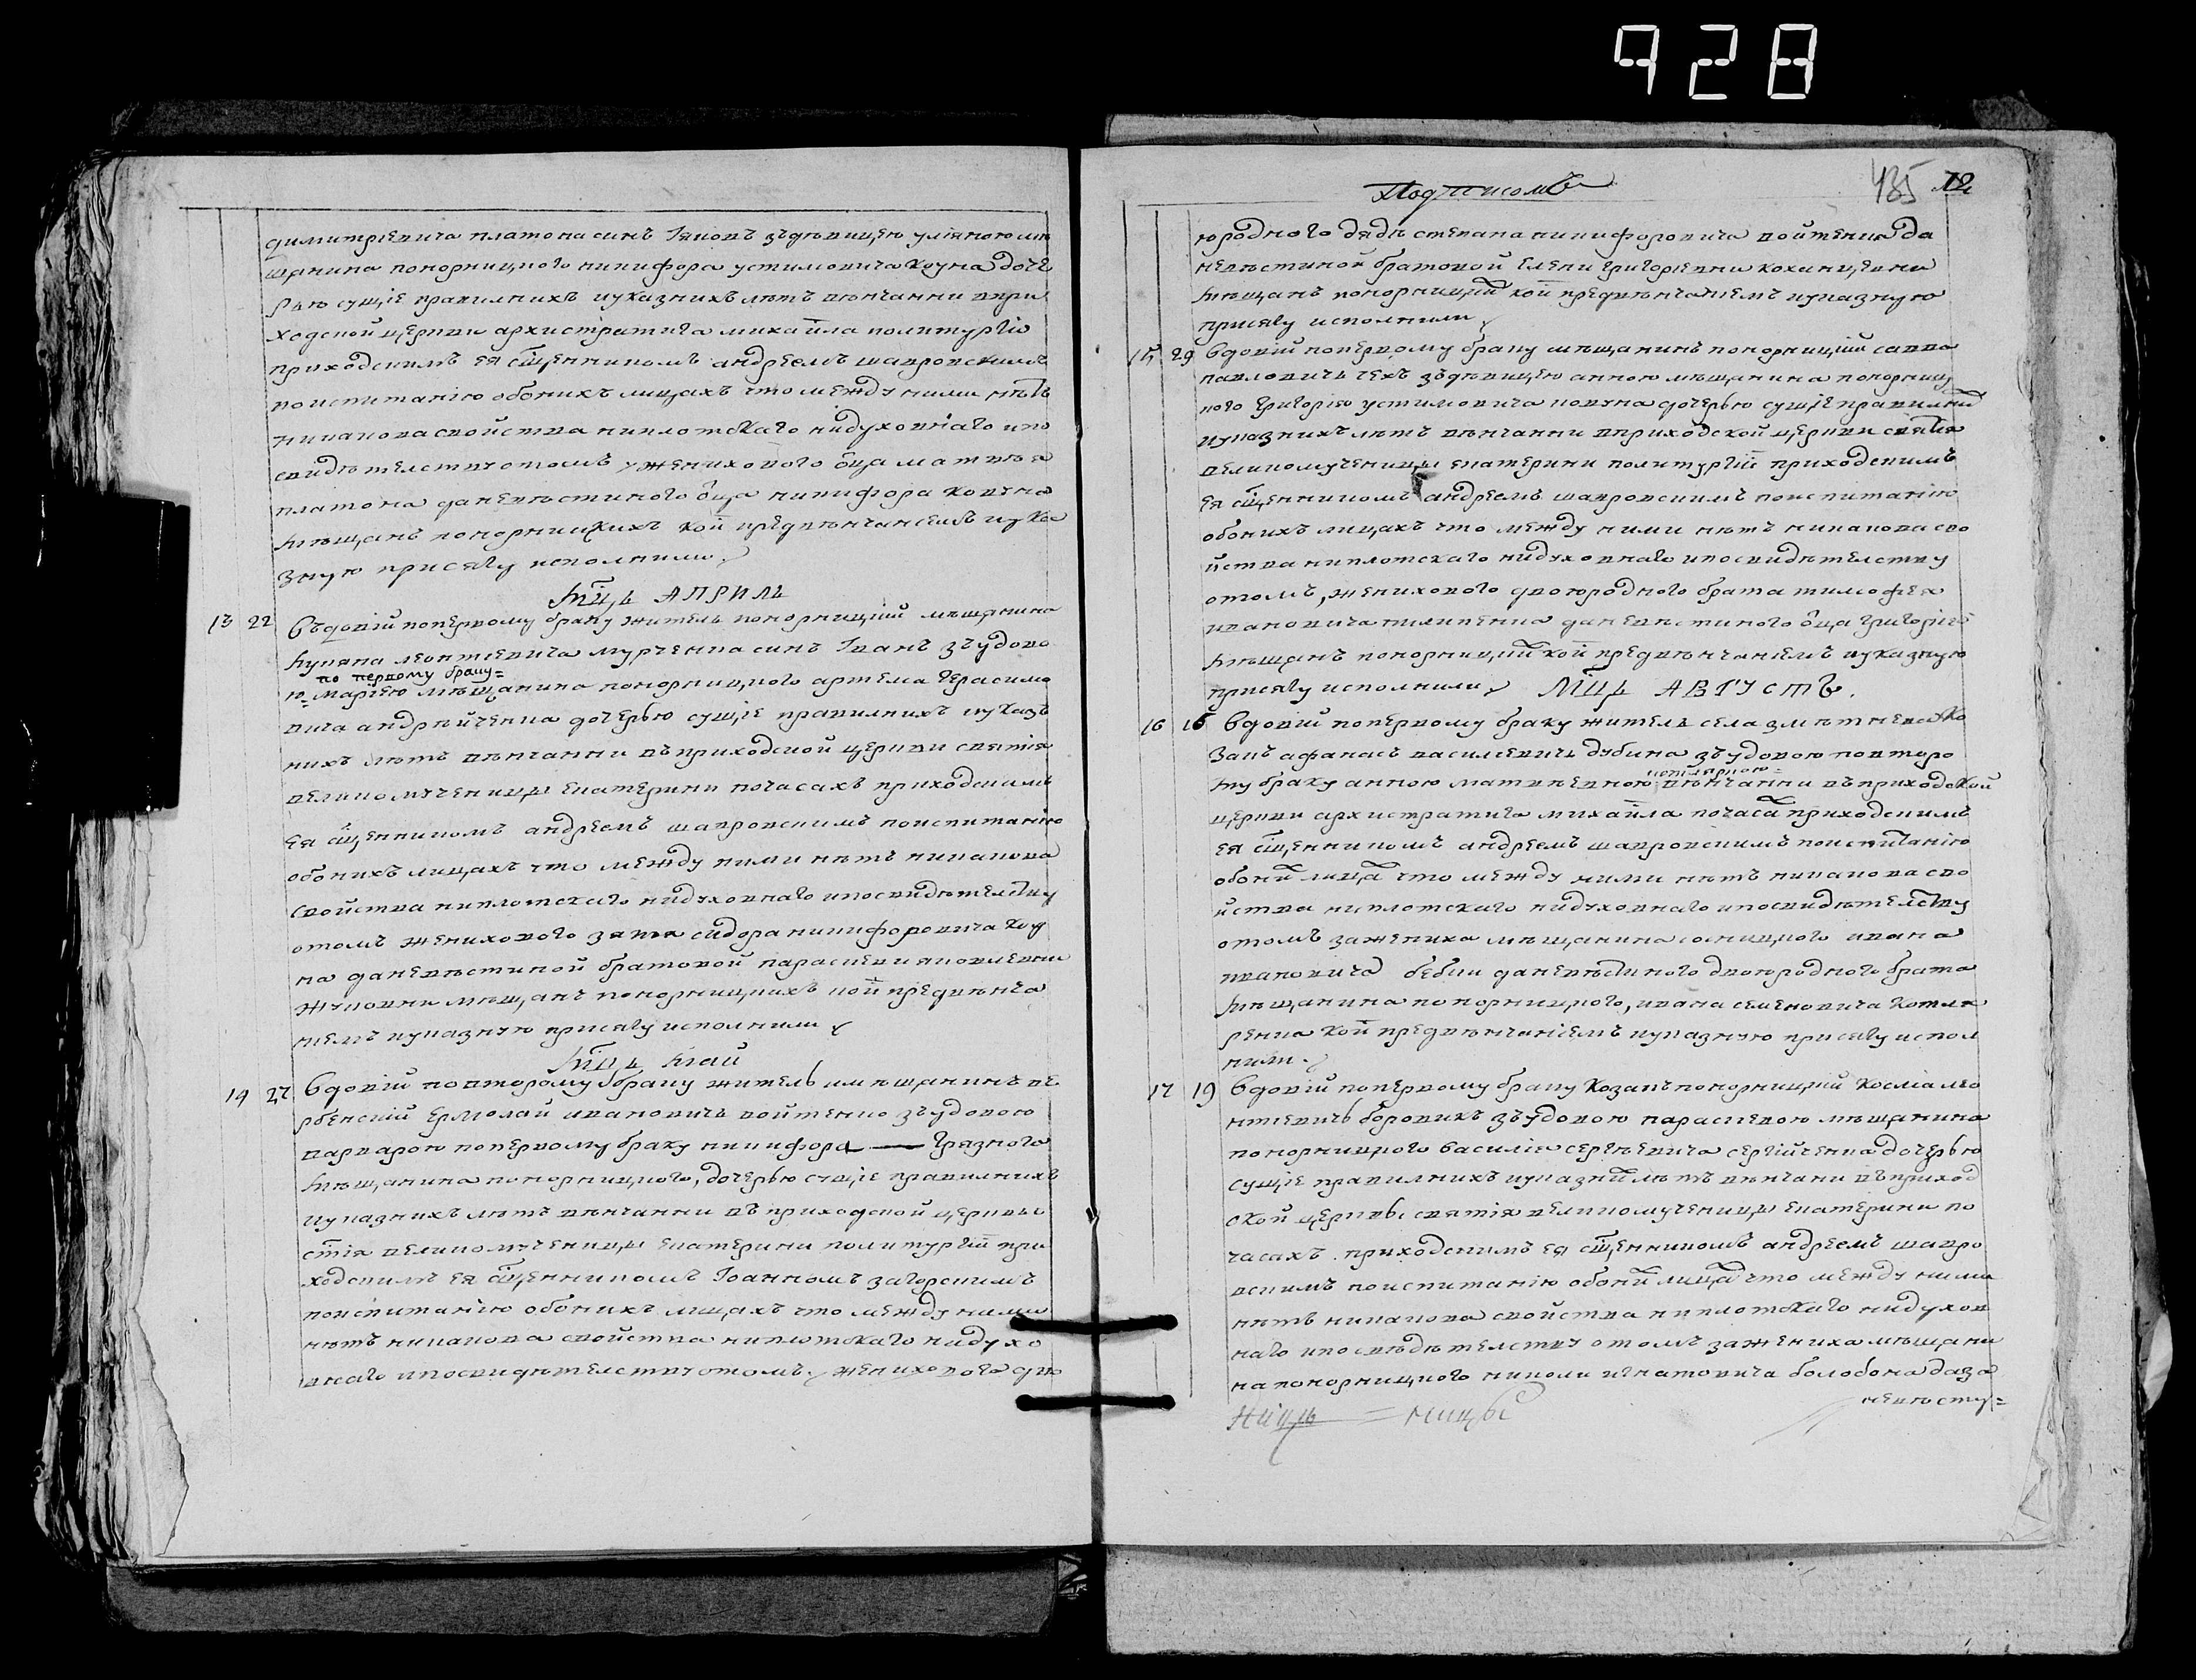 928
димитрїевича платона синъ Іяковъ зъдѣвицею уліяною мѣ
щанина понорницкого никифора устимовича ковуна дочѐ
рью сущіе правилнихъ иуказнихъ лѣтъ вѣнчанни впри
ходской церкви архистратига михаила политургіи
приходскимъ ея сщенникомъ андреемъ шавровскимъ
поиспитанію обоихъ лицахъ что между ними нѣтъ
никакова свойства ниплотскаго нидуховнаго ипо
свидѣтелству отомъ женихового оца матвѣя
платона даневѣстиного оца никифора ковуна
мѣщанъ понорницкихъ кои предвѣнчаніемъ иука
зную присягу исполнили
Мцъ АПРИЛЬ
13 22 Вдовій поперѣвому браку житель понорницкій мѣщанина
купряна леонтіевича мурченка синъ Іванъ зъудово
по первому браку=
ю маріею мѣщанина понорницкого артема герасимо
вича андрѣйченка дочерью сущіе правилнихъ иуказ
нихъ лѣтъ вѣнчанни въприходской церкви святія
великомученицы екатерини почасахъ приходскимъ
ея сщенникомъ андреемъ шавровскимъ поиспитанію
обоихъ лицахъ что между ними нѣтъ никакова
свойства ниплотскаго нидуховнаго ипосвидѣтелству
отомъ женихового зятя сидора никифоровича ковту
на даневѣстиной братовой параскеви яковлевни
жуковни мѣщанъ понорницкихъ кои предвѣнча
ніемъ иуказную присягу исполнили
Мцъ Май
14 27 Вдовій повторому браку житель имѣщанинъ ве
рбенскій Ермолай ивановичъ войтенко зъудовою
варварою поперѣвому браку никифора — грязного
мѣщанина понорницкого, дочерью сущіе правилнихъ
иуказнихъ лѣтъ вѣнчанни въприходской церквы
стія великомученицы екатерини политургіи при
ходскимъ ея сщенникомъ Іоанномъ загорскимъ
поиспитанію обоихъ лицахъ что между ними
нѣтъ никакова свойства ниплотскаго нидухо
внаго ипосвидѣтелству отомъ женихового дво
435 12
юродного дядѣ степана никифоровича войтенка да
невѣстиной братовой Елени григоріевни коханцевни
мѣщанъ понорницкий кои предвѣнчаніемъ иуказную
присягу исполнили
15 29 Вдовій поперѣвому браку мѣщанинъ понорницкій савва
павловичъ чехъ здѣвицею анною мѣщанина понорниц
кого григорія устимовича ковуна дочерью сущіе правилни
иуказнихъ лѣтъ вѣнчанни вприходской церкви святія
великомученицы екатерини политургіи приходскимъ
ея сщенникомъ андреемъ шавровскимъ поиспитанію
обоихъ лицахъ что между ними нѣтъ никакова сво
йства ниплотскаго нидуховнаго ипосвидѣтелству
отомъ, женихового двоюродного брата тимофея
ивановича пилипенка даневѣстиного оца григорія
мѣщанъ понорницкий кои предвѣнчаніемъ иуказную
присягу исполнили Мцъ АВГУстъ.
16 16 Вдовій поперѣвому браку житель села змѣтнева ко
закъ афанасъ василіевичъ дубина зъудовою повторо
му браку анною матвѣевною вѣнчанни въприходской
церкви архистратига михаила почаса приходскимъ
ея сщенникомъ андреемъ шавровскимъ поиспитанію
обои лица что между ними нѣтъ никакова сво
йства ниплотскаго нидуховнаго ипосвидѣтелству
отомъ зажениха мѣщанина сосницкого ивана
ивановича бебки даневѣстиного двоюродного брата
мѣщанина понорницкого, ивана семеновича котля
ренка кои предвѣнчаніемъ иуказную присягу испол
нили.
17 19 Вдовій поперѣвому браку козакъ понорницкій косма лео
нтіевичъ боровикъ зъудовою параскевою мѣщанина
понорницкого василія сергѣевича сергійченка дочерью
сущіе правилнихъ иуказни лѣтъ вѣнчани въприход
ской церквы святія великомученицы екатерини по
часахъ приходскимъ ея сщенникомъ андреемъ шавро
вскимъ поиспитанію обои лица что между ними
нѣтъ никакова свойства ниплотскаго нидухов
наго ипосвѣдѣтелству отомъ зажениха мѣщани
на понорницкого николи игнатовича болобона даза
невѣсту=